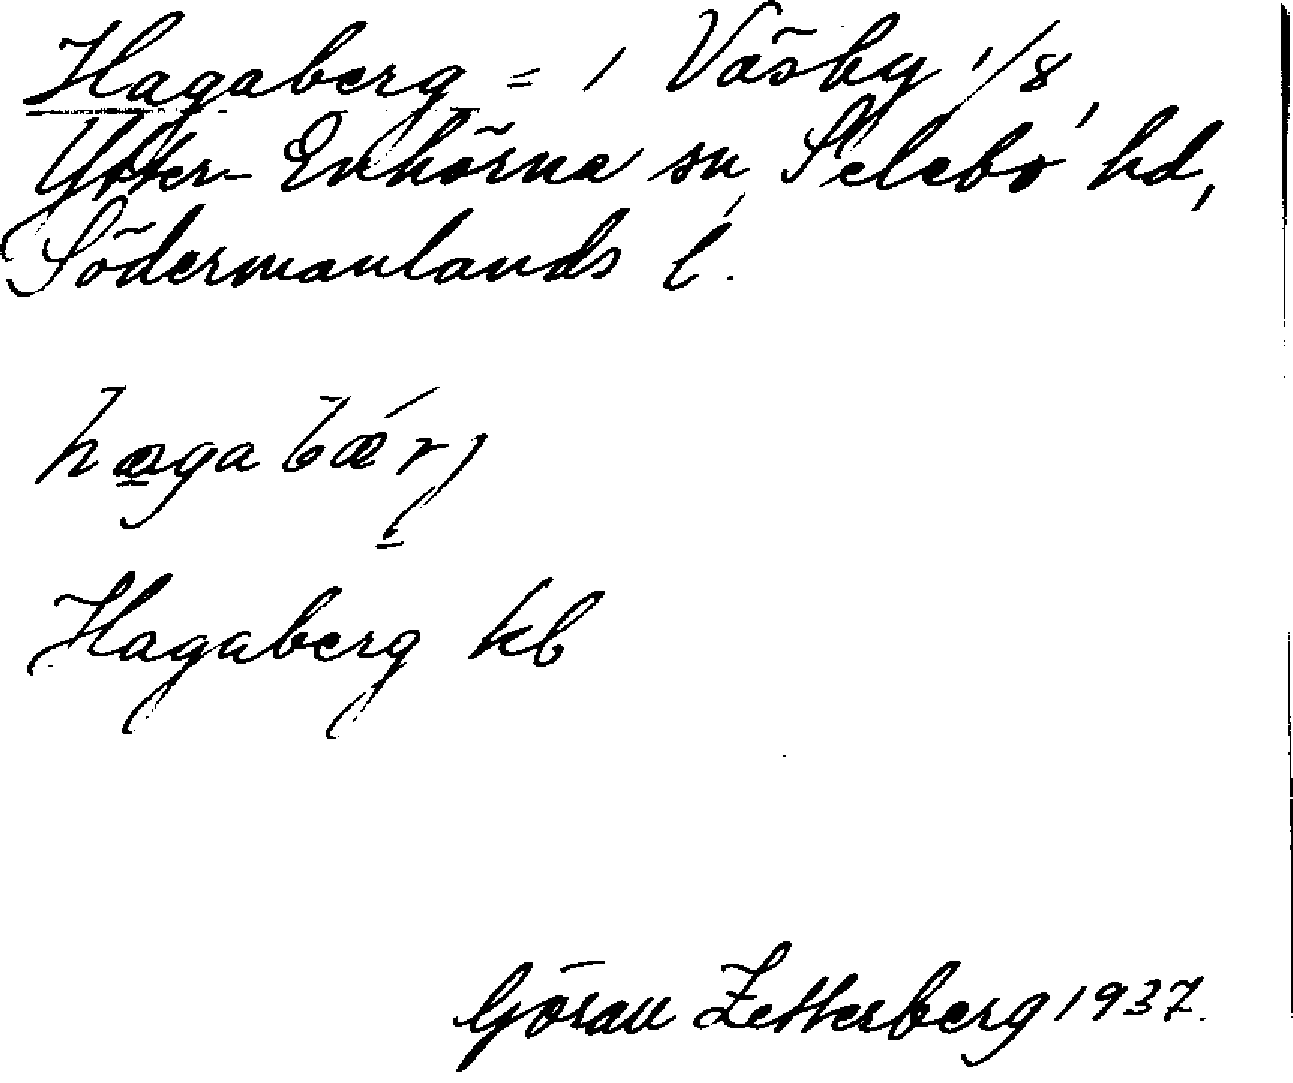 Hagaberg = 1 Väsby 1/8,
Ytter-Enhörna sn, Selebo hd,
Södermanlands l.
hagabærj
Hagaberg kb
Göran Zetterberg 1937.